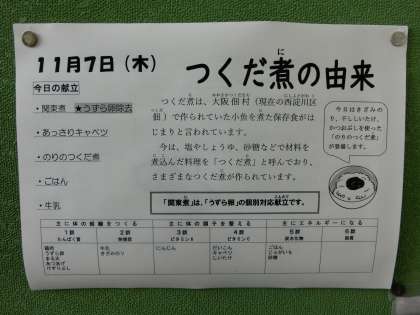 11月7日（木）
つくだ煮の由来
に
今日の献立
・関東煮　★うずら卵除去
・あっさりキャベツ
・のりのつくだ煮
・ごはん
・牛乳
つくだ煮は、大阪佃村（現在の西淀川区
佃）で作られていた小魚を煮た保存食がは
じまりと言われています。
今は、塩やしょうゆ、砂糖などで材料を
煮込んだ料理を「つくだ煮」と呼んでおり、
さまざまなつくだ煮が作られています。
今日はきざみの
り、干ししいたけ、
かつおぶしを使った
「のりのつくだ煮」
が登場します。
「関東煮」は、「うずら卵」の個別対応献立です。
主に体の組織をつくる　主に体の調子を整える　主にエネルギーになる
1群　2群　3群　4群　5群　6群
たんぱく質　無機質　ビタミンA　ビタミンC　炭水化物　脂質
鶏肉　牛乳　にんじん　だいこん　ごはん
うずら卵　きざみのり　キャベツ　じゃがいも
しいたけ　砂糖
あつあげ
けずりぶし